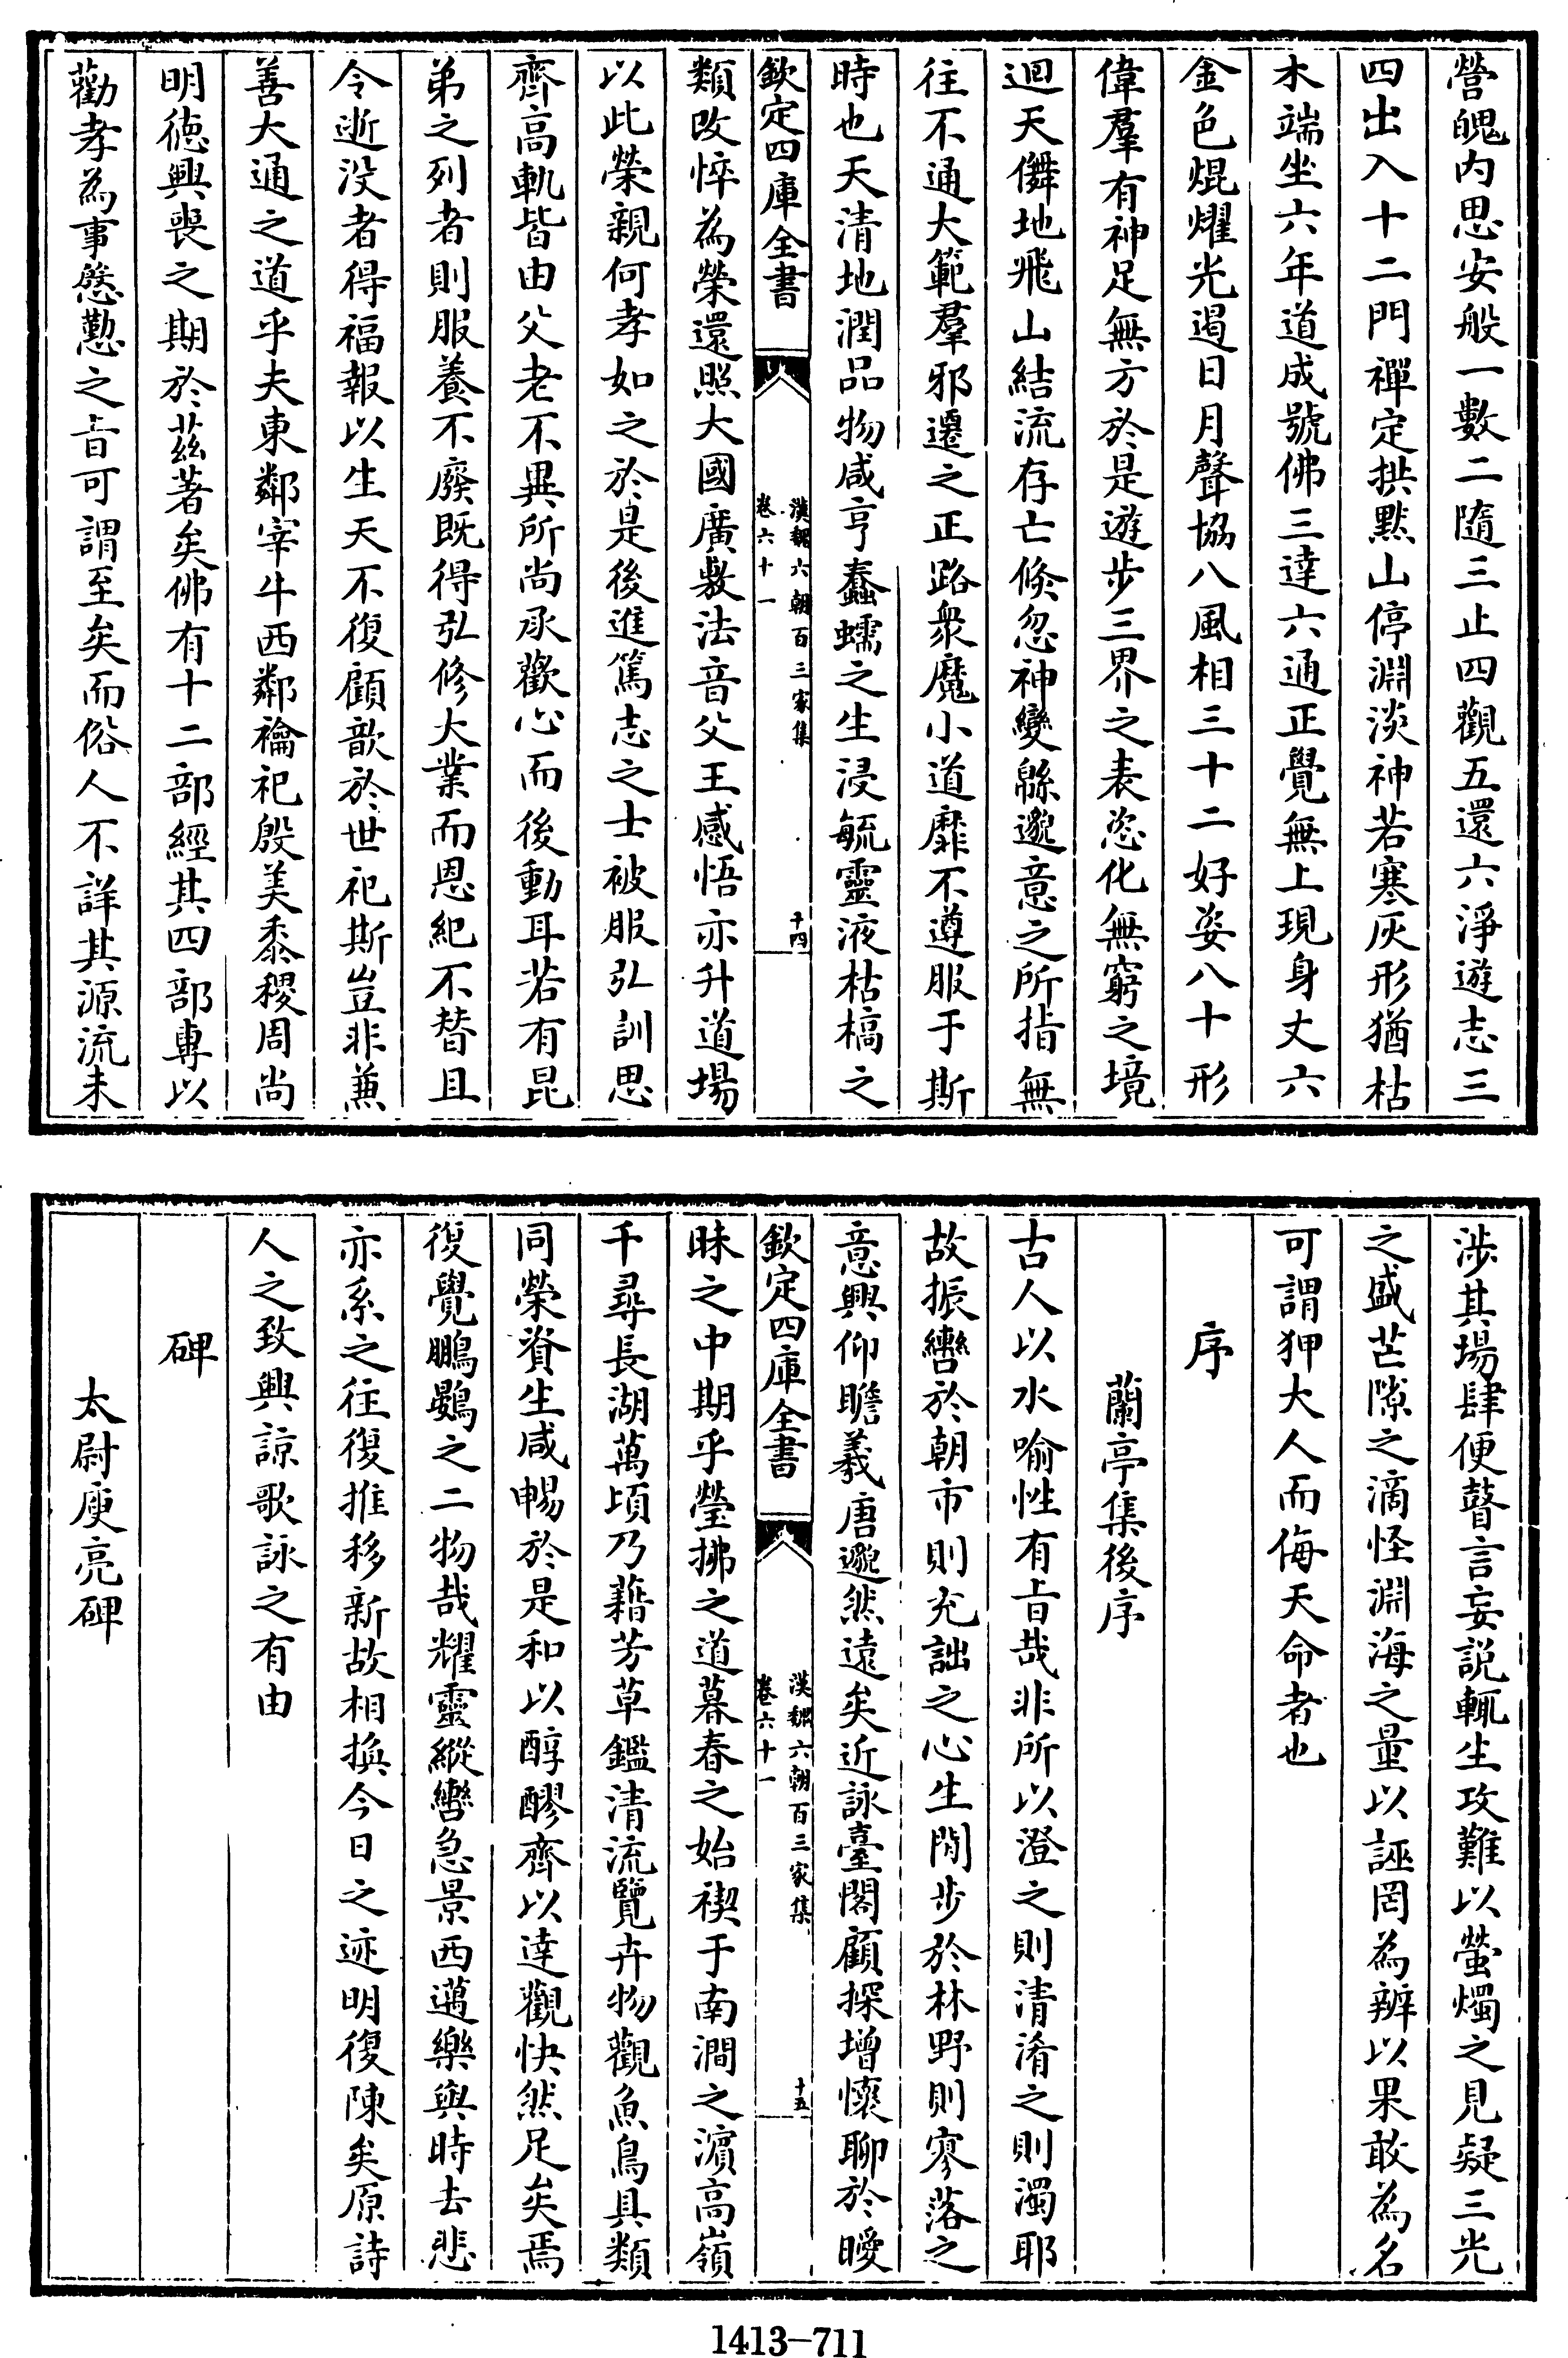 營魄内思安般一數二隨三止四觀五還六淨遊志三
四出入十二門禪定拱黙山停淵淡神若寒灰形猶枯
木端坐六年道成號佛三達六通正覺無上現身丈六
金色焜燿光遏日月聲協八風相三十二好姿八十形
偉羣有神足無方於是遊步三界之表恣化無窮之境
迴天儛地飛山結流存亡倏忽神變緜邈意之所指無
往不通大範羣邪遷之正路衆魔小道靡不遵服于斯
時也天清地潤品物咸亨蠢蠕之生浸毓靈液枯槁之
欽定四庫全書
漢魏六朝百三家集
卷六十一
十四
類改悴為榮還照大國廣敷法音父王感悟亦升道場
以此榮親何孝如之於是後進篤志之士被服弘訓思
齊高軌皆由父老不異所尚承歡心而後動耳若有昆
弟之列者則服養不廢既得弘修大業而恩紀不替且
令逝没者得福報以生天不復顧歆於世祀斯豈非兼
善大通之道乎夫東鄰宰牛西鄰禴祀殷美黍稷周尚
明徳興喪之期於茲著矣佛有十二部經其四部專以
勸孝為事慇懃之旨可謂至矣而俗人不詳其源流未
涉其場肆便瞽言妄説輒生攻難以螢燭之見疑三光
之盛芒隙之滴怪淵海之量以誣罔為辨以果敢為名
可謂狎大人而侮天命者也
序
蘭亭集後序
古人以水喻性有旨哉非所以澄之則清淆之則濁耶
故振轡於朝市則充詘之心生閒步於林野則寥落之
意興仰瞻羲唐邈然遠矣近詠臺閣顧探增懷聊於曖
欽定四庫全書
漢魏六朝百三家集
卷六十一
十五
昧之中期乎瑩拂之道暮春之始禊于南澗之濵高嶺
千尋長湖萬頃乃藉芳草鑑清流覽卉物觀魚鳥具類
同榮資生咸暢於是和以醇醪齊以達觀快然足矣焉
復覺鵬鷃之二物哉耀靈縱轡急景西邁樂與時去悲
亦系之往復推移新故相換今日之迹明復陳矣原詩
人之致興諒歌詠之有由
碑
太尉庾亮碑
1413—711